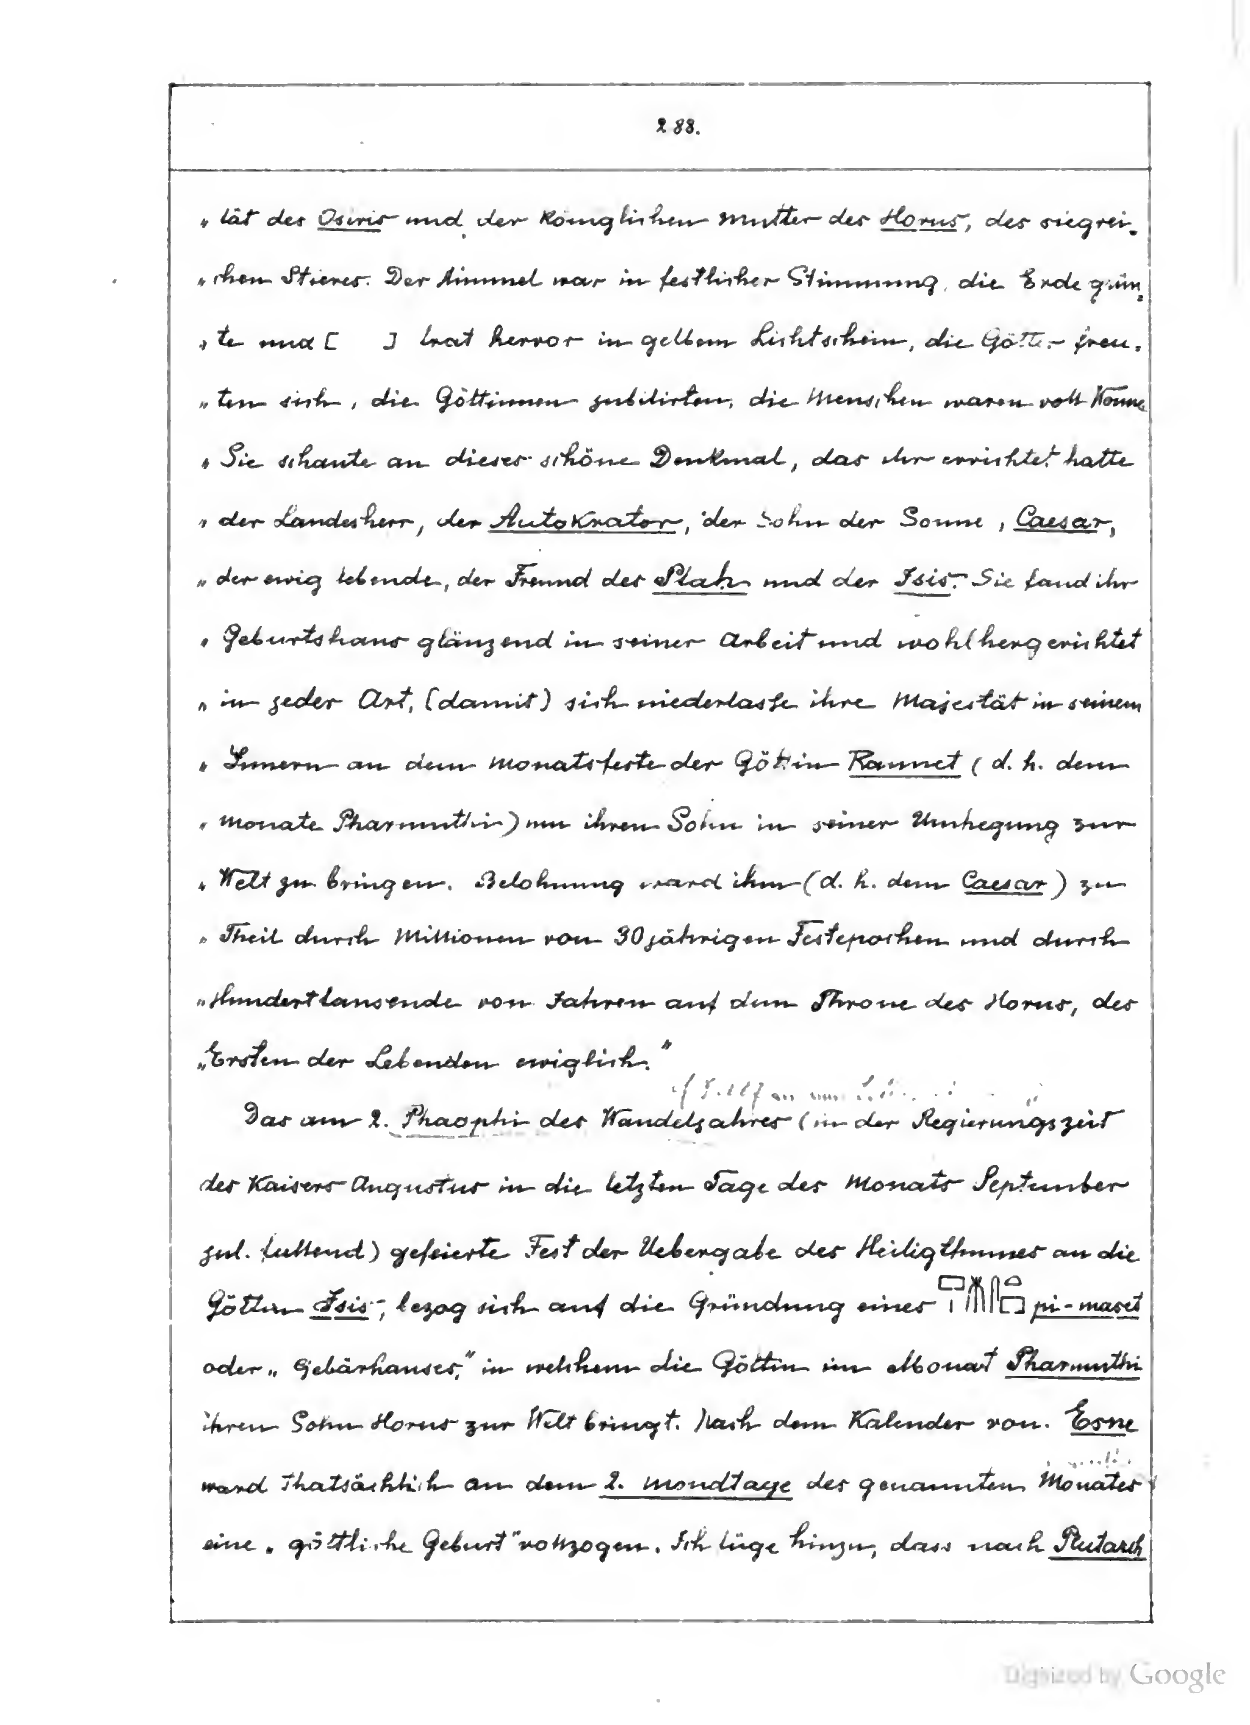 288.
„ tät des Osiris und der Königlichen Mutter des Horus, des siegrei-
„ chen Stieres. Der Himmel war in festlicher Stimmung, die Erde grün-
„ te und [ ] trat hervor in gelbem Lichtschein, die Götter freu-
„ ten sich, die Göttinnen jubilirten, die Menschen waren voll Wonne
„ Sie schaute an dieses schöne Denkmal, das ihr errichtet hatte
„ der Landesherr, der Autokrator, der Sohn der Sonne, Caesar,
„ der ewig lebende, der Freund des Ptah und der Isis. Sie fand ihr
„ Geburtshaus glänzend in seiner Arbeit und wohlhergerichtet
„ in jeder Art, (damit) sich niederlasse ihre Majestät in seinem
„ Innern an dem Monatsfeste der Göttin Rannet (d. h. dem
„ Monate Pharmuthi) um ihren Sohn in seiner Umhegung zur
„ Welt zu bringen. Belohnung ward ihm (d. h. dem Caesar) zu
„ Theil durch Millionen von 30jährigen Festepochen und durch
„ Hunderttausende von Jahren auf dem Throne des Horus, des
„ Ersten der Lebenden ewiglich."
Das am 2. Phaophi des Wandeljahres (in der Regierungszeit
des Kaisers Augustus in die letzten Tage des Monats September
jul. fallend) gefeierte Fest der Uebergabe des Heiligthumes an die
Göttin Isis, bezog sich auf die Gründung eines pi-maset
oder „Gebärhauses," in welchem die Göttin im Monat Pharmuthi
ihren Sohn Horus zur Welt bringt. Nach dem Kalender von Esne
ward thatsächlich an dem 2. Mondtage des genannten Monates
eine „göttliche Geburt" vollzogen. Ich füge hinzu, dass nach Plutarch
Digitized by Google